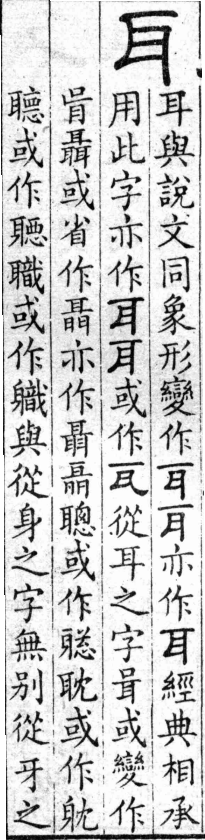 耳
耳與說文同象形變作耳耳亦作耳經典相承
用此字亦作耳耳或作耳從耳之字咠或變作
咠聶或省作聶亦作聶聶聰或作聦耽或作躭
聽或作聴職或作軄與從身之字無别從牙之